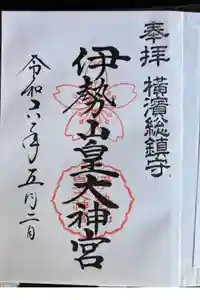 奉拝 横濱総鎮守
伊勢山皇大神宮
令和六年五月二日